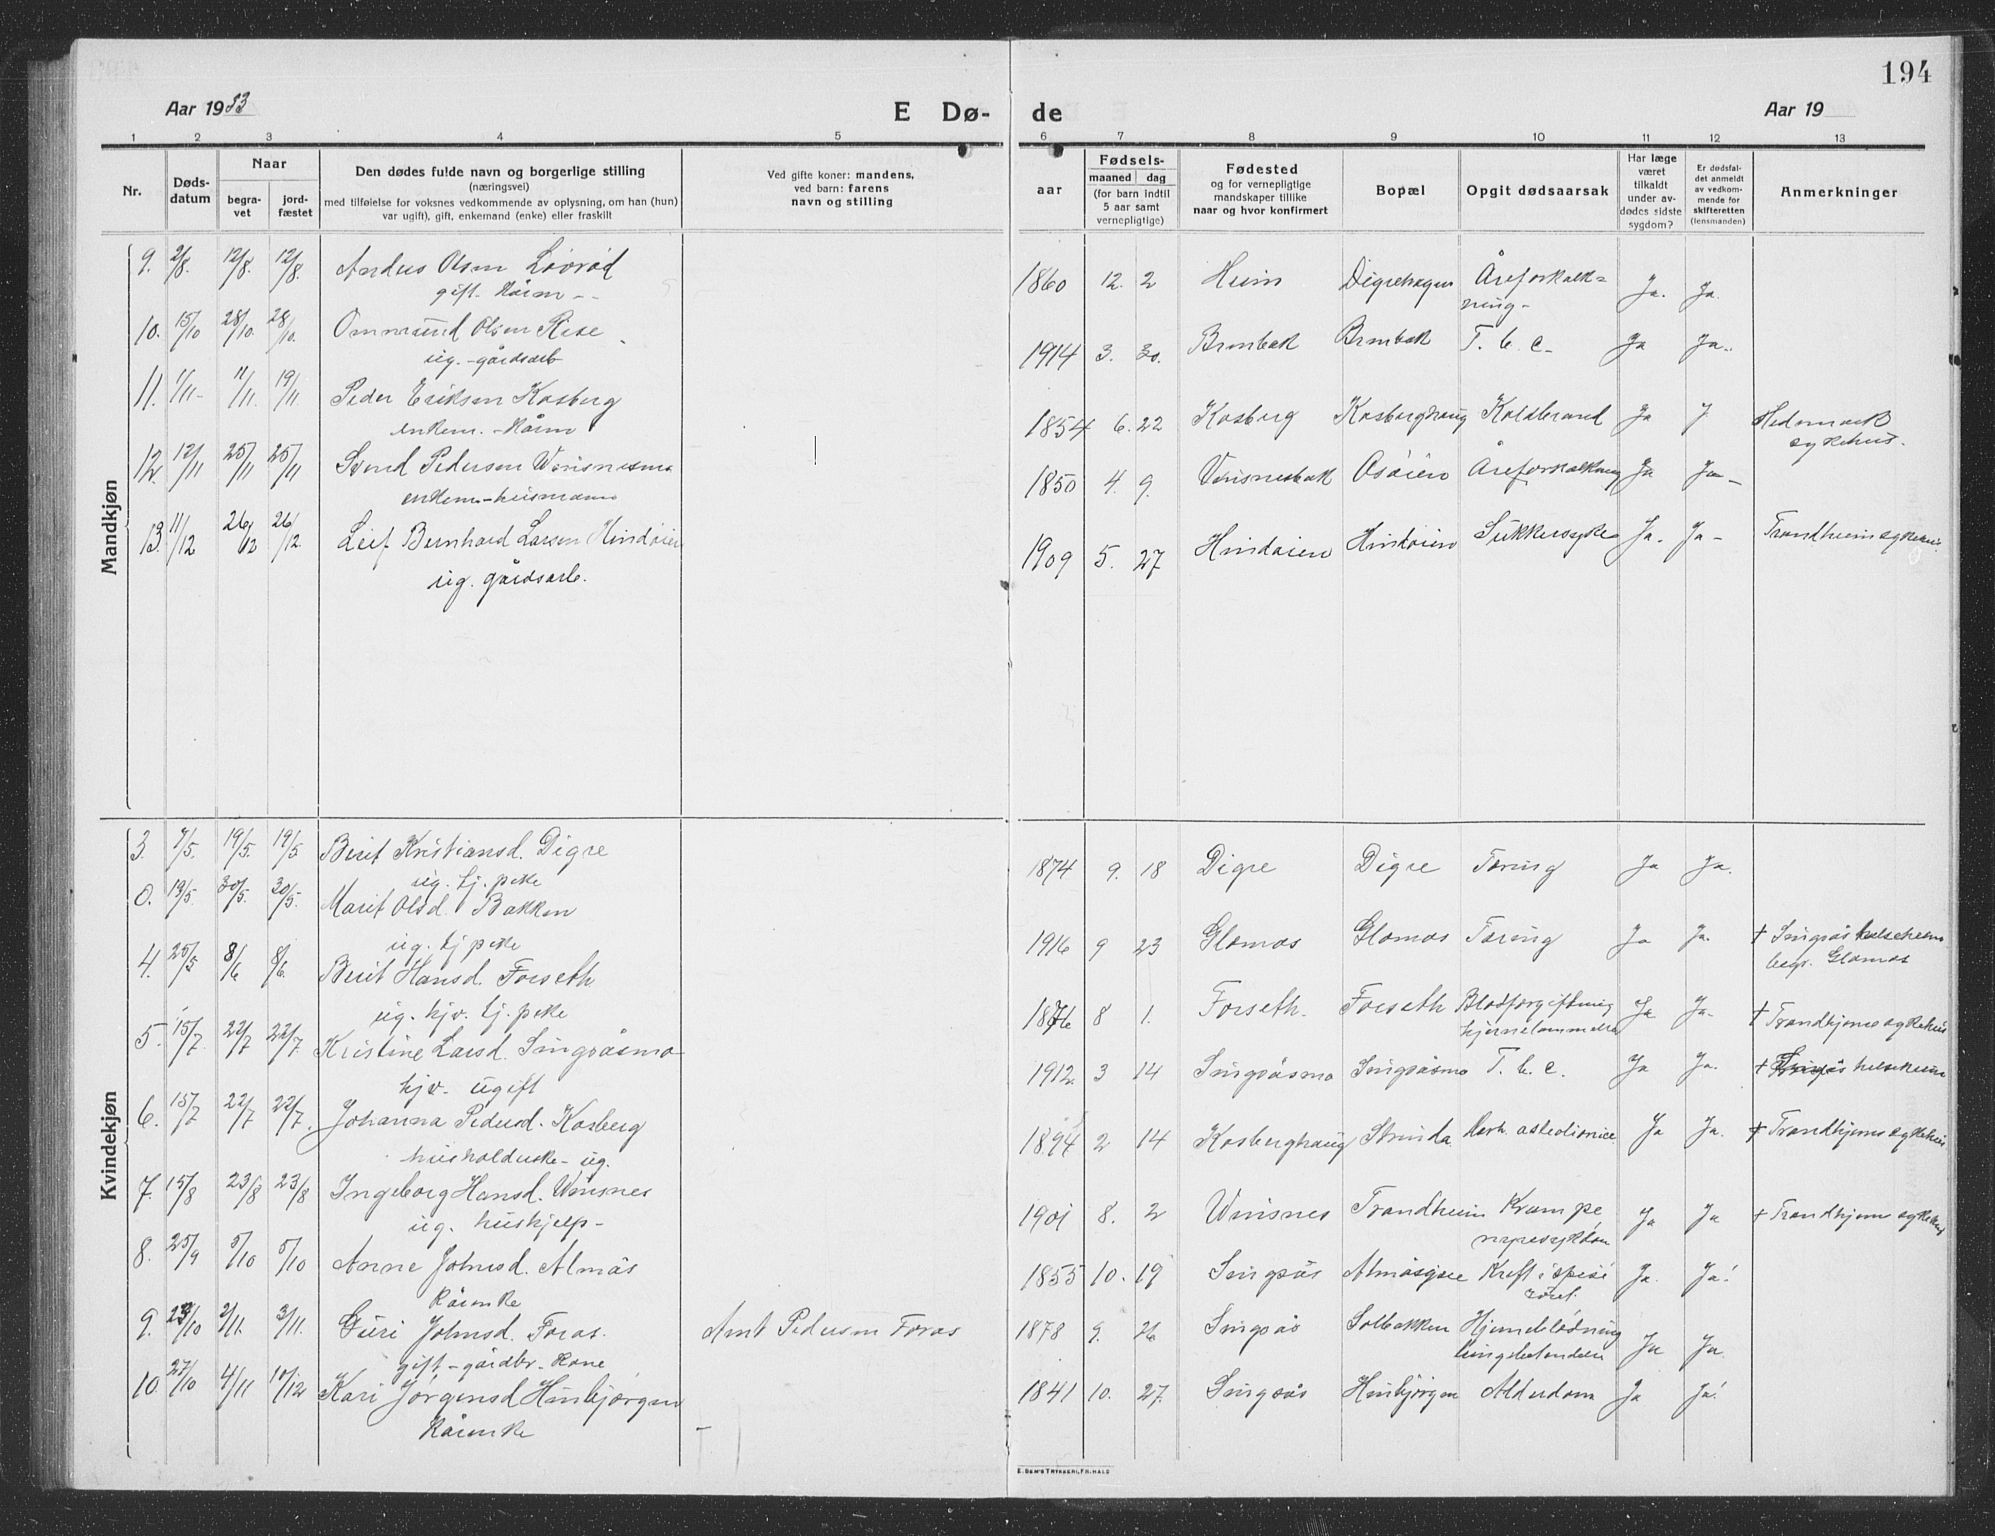 194
Aar 1933
E Dø-
de
Aar 19
1 2 3 4 5 6 7 8 9 10 11 12 13
Nr.
Døds-
datum
Naar
begra-
vet
jord-
fæstet
Den dødes fulde navn og borgerlige stilling
(næringsvei)
med tilføielse for voksnes vedkommende av oplysning, om han (hun)
var ugift), gift, enkemand (enke) eller fraskilt
Ved gifte koner: mandens,
ved barn: farens
navn og stilling
aar
Fødsels-
maaned dag
(for barn indtil
5 aar samt
vernepligtige)
Fødested
og for vernepligtige
mandskaper tillike
naar og hvor konfirmert
Bopæl
Opgit dødsaarsak
Har læge
været
tilkaldt
under av-
dødes sidste
sygdom?
Er dødsfal-
det anmeldt
av vedkom-
mende for
skifteretten
(lensmanden)
Anmerkninger
Mandkjøn
9. 2/8. 12/8. 12/8. Anders Olsen Løvrød 1860 12. 2 Heim Digrehagen Åreforkalk=
gift. Kårm - - ning - Ja. Ja.
10. 15/10 28/10. 28/10. Ommund Olsen Rise 1914 3. 30. Brubak Brubak T. b. c. Ja Ja.
ug. - gårdsarb
11. 1/11 - 11/11. 19/11 Peder Eriksen Kosberg 1854 6. 22 Kosberg Kosberghaug Koldbrand Ja J. Hedmark
enkem. - Kårm sykehus.
12. 12/11 25/11 25/11 Svend Pedersen Winsnesmo 1850 4. 9. Vinsnesbak Osøien Åreforkalkning Ja Ja -
enkem - husmann
13. 11/12 26/12 26/12 Leif Bernhard Larsen Hindøien 1909 5. 27 Hindøien Hindøien Sukkersyke Ja. Ja - Trondheim sykehus.
ug. gårdsarb.
Kvindekjøn
3. 7/5. 19/5. 19/5 Berit Kristiansd. Digre 1874 9. 18 Digre Digre Tæring Ja Ja.
ug. tj. pike
0. 13/5. 30/5. 30/5. Marit Olsd. Bakken 1916 9 23 Glåmos Glåmos Tæring Ja Ja. † Singsås helseheim
ug. tj pike begr. Glåmos
4. 25/5 8/6 8/6. Berit Hansd. Forseth 1876 8 1. Forseth. Forseth Blodforgiftning Ja Ja. † Trondhjems sykehus
ug. hjv. tj. pike hjernelammelse
5. 15/7. 22/7 22/7. Kristine Larsd. Singsåsmo 1912 3 14 Singsåsmo Singsåsmo T. b. c. Ja Ja. † Singsås helseheim
hjv. ugift
6. 15/7 22/7 22/7. Johanna Pedersd. Kosberg 1894 2 14 Kosberghaug Strinda Ja Ja. † Trondhjems sykehus
husholderske - ug.
7. 15/8 23/8 23/8 Ingeborg Hansd. Winsnes 1901 8. 2 Winsnes Trondheim Krampe Ja Ja † Trondhjem sykehus
ug. hushjelp - nyresykdom
8. 25/9 5/10 5/10 Anne Johnsd. Almås 1855 10. 19 Singsås Almåsgjære Kreft i spise Ja. Ja!
Kårenke røret.
9. 23/10 2/11. 3/11. Guri Johnsd. Foros. Arnt Pedersen Foros 1878 9. 26 Singsås Solbakken Hjerneblødning Ja Ja
gift - gårdbr. kone lungebetendelse
10. 27/10 4/11 10/12 Kari Jørgensd Hinbjørgen - 1841 10. 27. Singsås Hinbjørgen Alderdom Ja Ja!
Kårenke
E. SEM'S TRYKKERI, FR. HALD